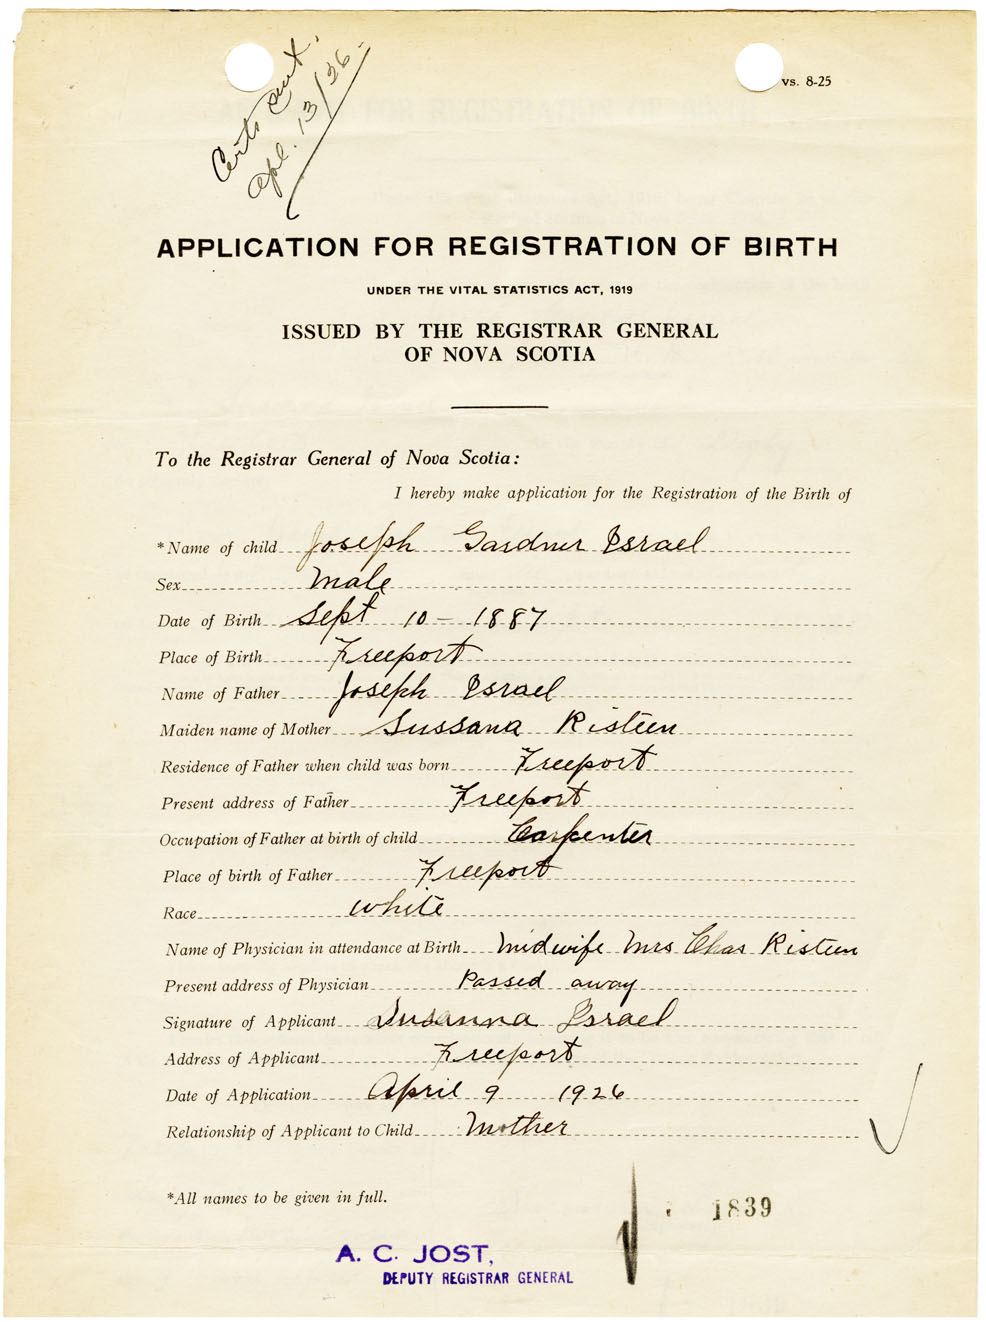 Certs sent.
Apl. 13/26
vs. 8-25
APPLICATION FOR REGISTRATION OF BIRTH
UNDER THE VITAL STATISTICS ACT, 1919
ISSUED BY THE REGISTRAR GENERAL
OF NOVA SCOTIA
To the Registrar General of Nova Scotia:
I hereby make application for the Registration of the Birth of
*Name of child Joseph Gardner Israel
Sex Male
Date of Birth Sept 10 - 1887
Place of Birth Freeport
Name of Father Joseph Israel
Maiden name of Mother Sussana Risteen
Residence of Father when child was born Freeport
Present address of Father Freeport
Occupation of Father at birth of child Carpenter
Place of birth of Father Freeport
Race white
Name of Physician in attendance at Birth Midwife Mrs Chas Risteen
Present address of Physician Passed away
Signature of Applicant Susanna Israel
Address of Applicant Freeport
Date of Application April 9 1926
Relationship of Applicant to Child Mother
*All names to be given in full.
1839
A. C. JOST,
DEPUTY REGISTRAR GENERAL